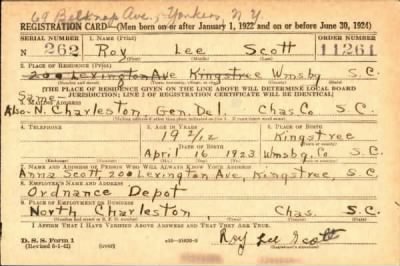 68 Belknap Ave., Yonkers, N. Y.
REGISTRATION CARD—(Men born on or after January 1, 1922 and on or before June 30, 1924)
SERIAL NUMBER 1. NAME (Print) ORDER NUMBER
N 262 Roy Lee Scott 11261
(First) (Middle) (Last)
2. PLACE OF RESIDENCE (Print)
200 Lexington Ave Kingstree Wmsbg S.C.
[THE PLACE OF RESIDENCE GIVEN ON THE LINE ABOVE WILL DETERMINE LOCAL BOARD
JURISDICTION; LINE 2 OF REGISTRATION CERTIFICATE WILL BE IDENTICAL]
Same
3. MAILING ADDRESS
Also-N. Charleston Gen. Del. Chas. Co S. C.
4. TELEPHONE 5. AGE IN YEARS 6. PLACE OF BIRTH
Kingstree
DATE OF BIRTH
April 16 1923 Wmsbg. Co S. C.
(Exchange) (Number) (Mo.) (Day) (Yr.) (State or country)
7. NAME AND ADDRESS OF PERSON WHO WILL ALWAYS KNOW YOUR ADDRESS
Anna Scott, 200 Lexington Ave, Kingstree, S. C.
8. EMPLOYER'S NAME AND ADDRESS
Ordnance Depot
9. PLACE OF EMPLOYMENT OR BUSINESS
North Charleston Chas. S. C.
(Number and street or R. F. D. number) (Town) (County) (State)
I AFFIRM THAT I HAVE VERIFIED ABOVE ANSWERS AND THAT THEY ARE TRUE.
D. S. S. Form 1
(Revised 6-1-42)
Roy Lee Scott
(Registrant's signature)